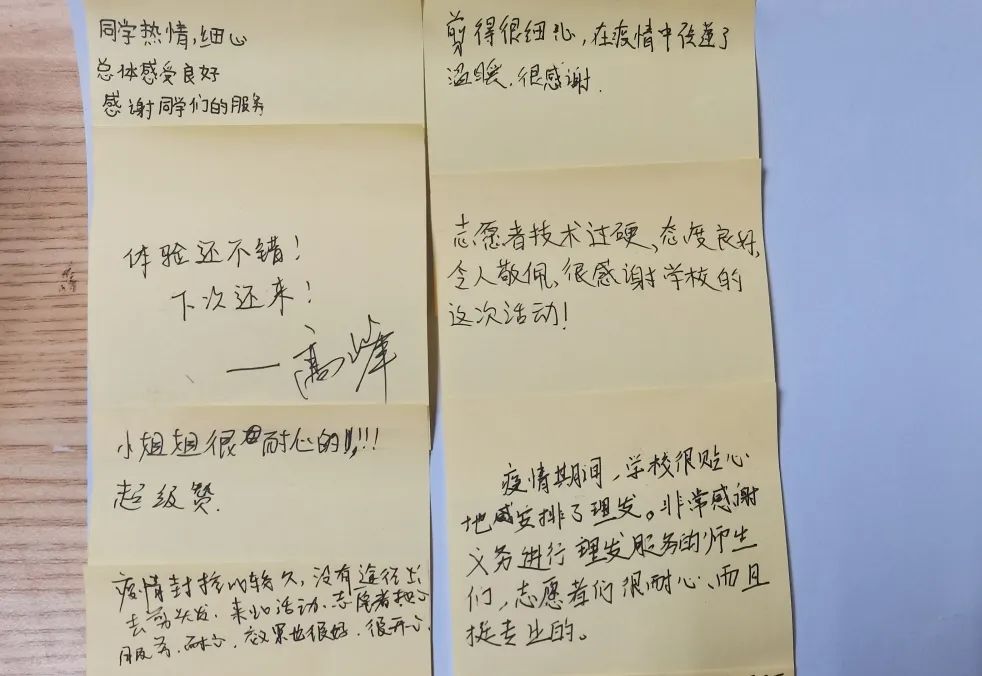 同学热情,细心
总体感受良好
感谢同学们的服务
体验还不错!
下次还来!
——高峰
小姐姐很耐心的!!!
超级赞.
疫情封控比较久,没有途径出
去剪头发.来此活动.志愿者热心
服务.耐心.效果也很好.很开心.
剪得很细心,在疫情中传递了
温暖.很感谢.
志愿者技术过硬、态度良好,
令人敬佩,很感谢学校的
这次活动!
疫情期间,学校很贴心
地安排了理发。非常感谢
义务进行理发服务的师生
们,志愿者们很耐心、而且
挺专业的。